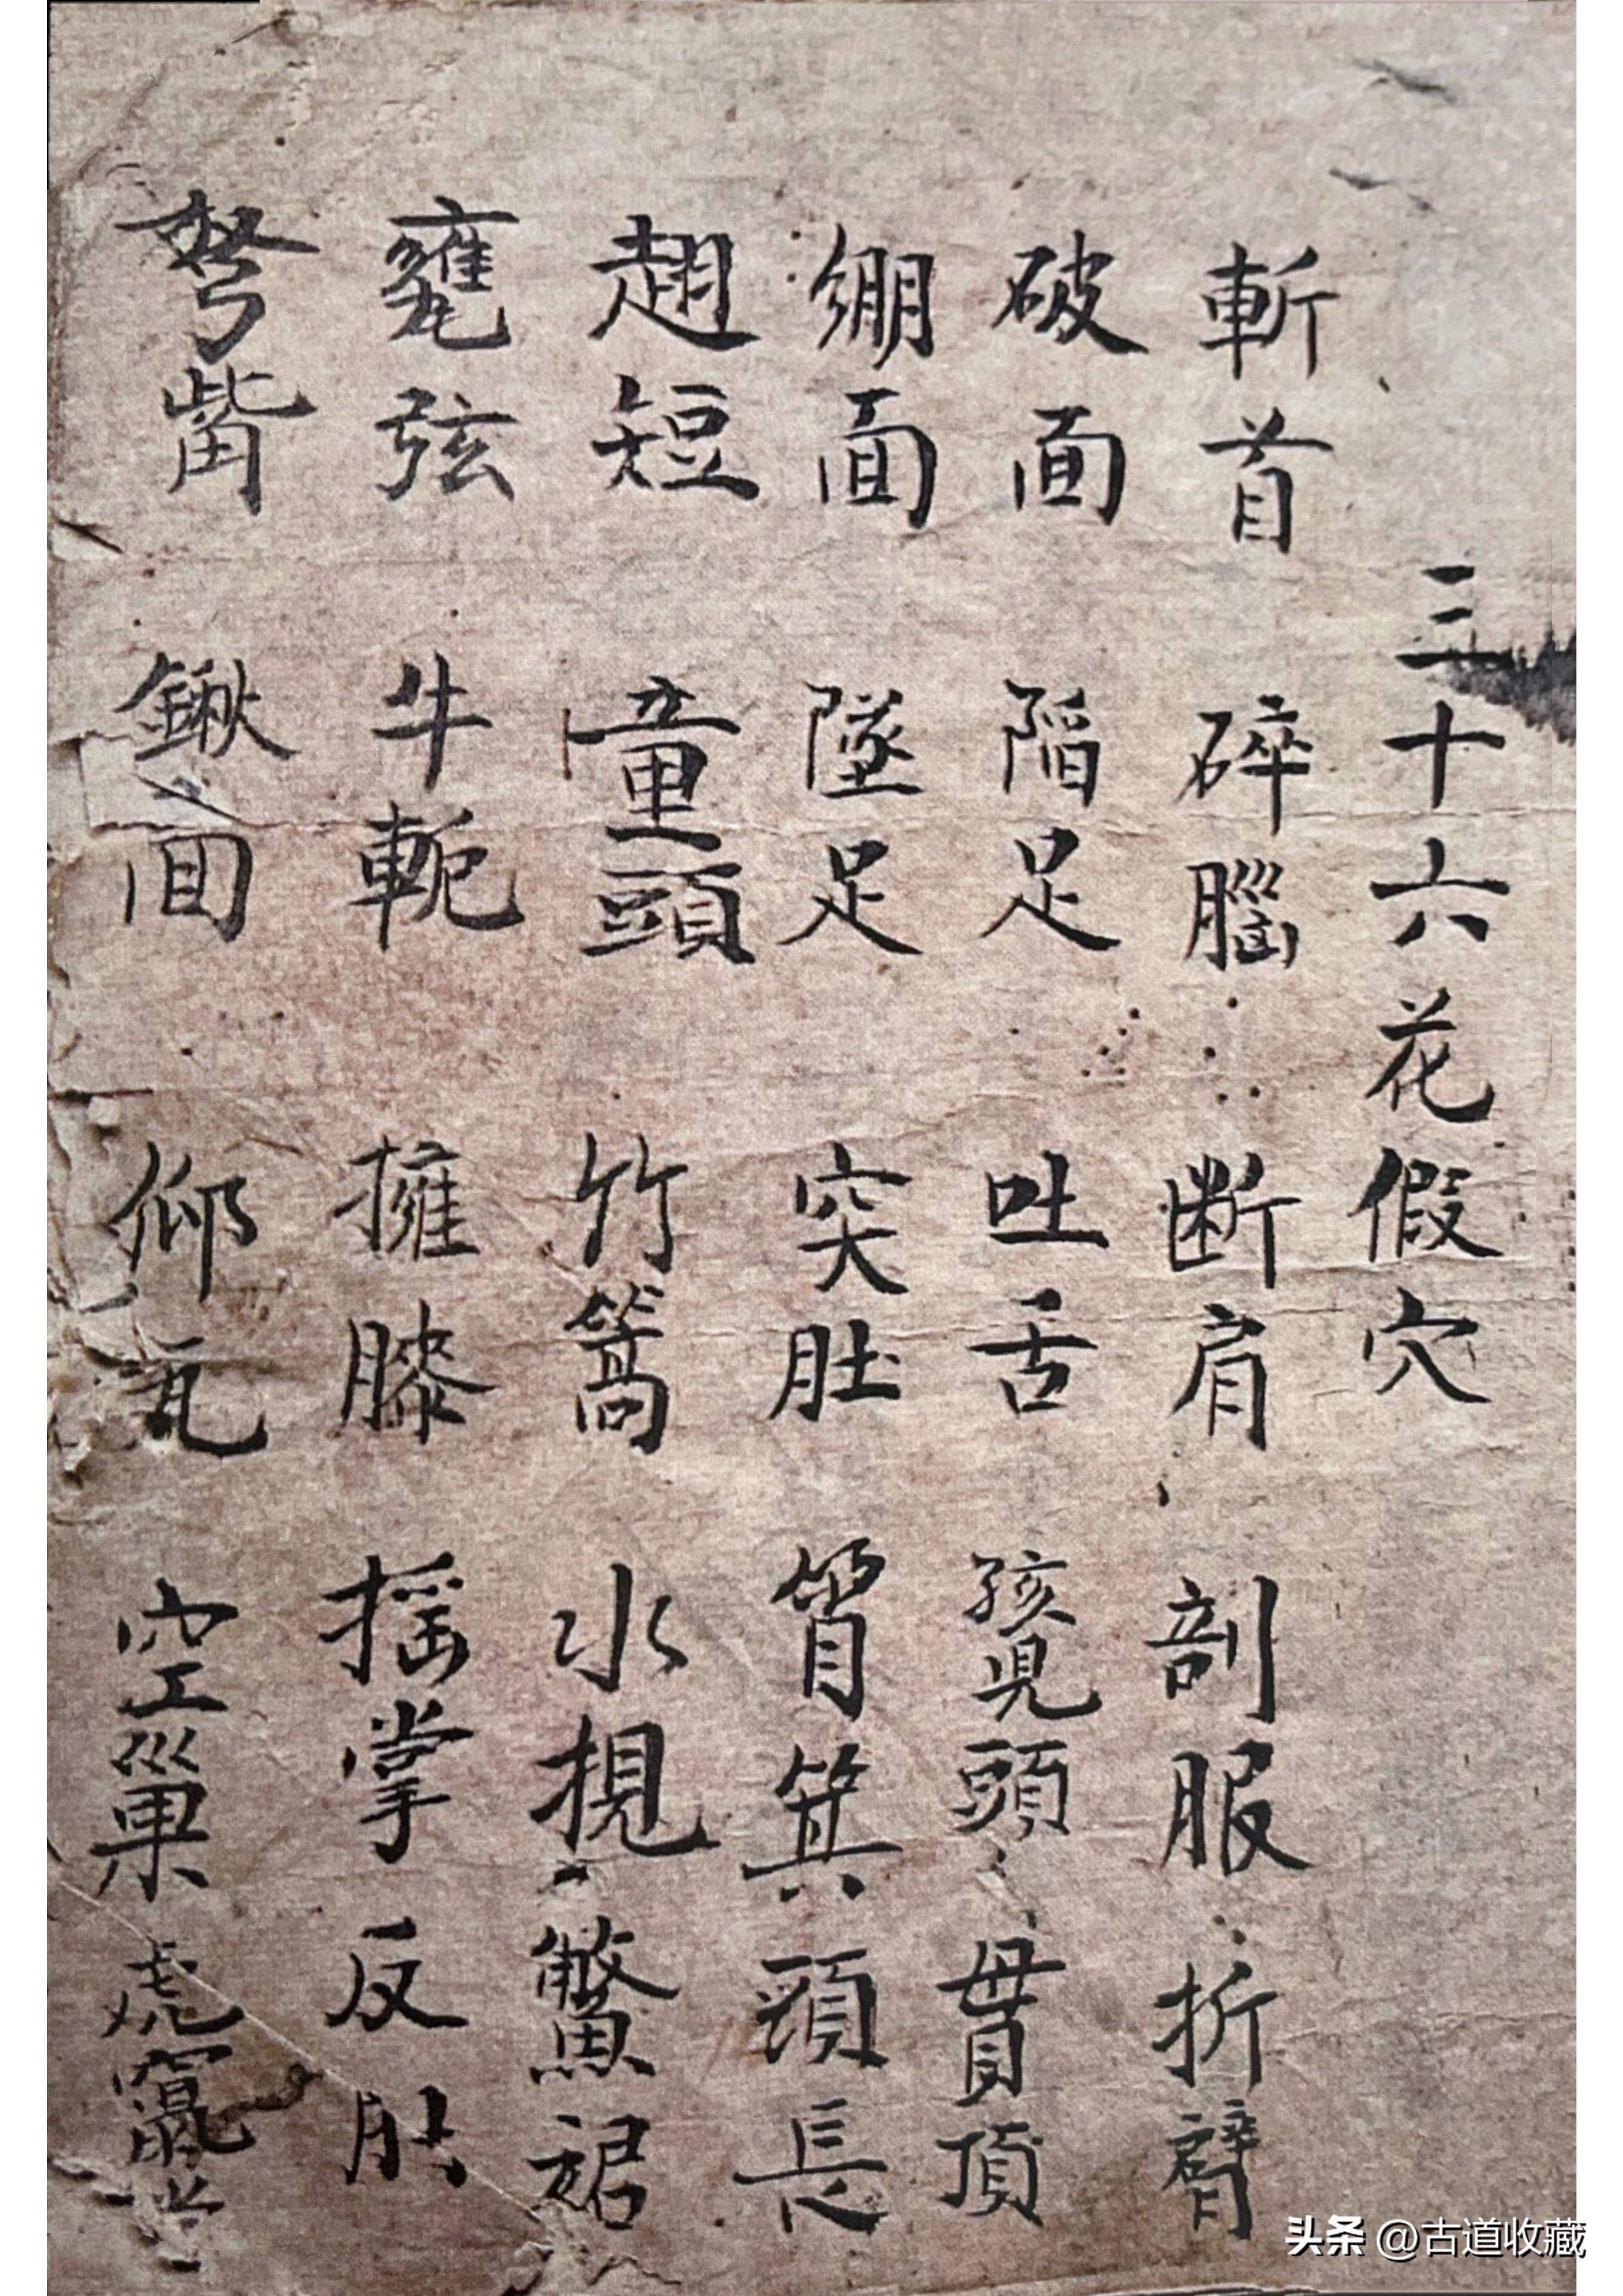 三十六花假穴
斬首 碎腦 断肩 剖服 折臂
破面 陷足 吐舌 孩兒頭 貫頂
绷面 墜足 突肚 箕 頭長
趙短 童頭 竹篙 水梘 鱉裙
甕弦 牛軛 擁膝 摇掌 反肘
弩觜 鍬面 仰瓦 空巢 虎
头条 @古道收藏